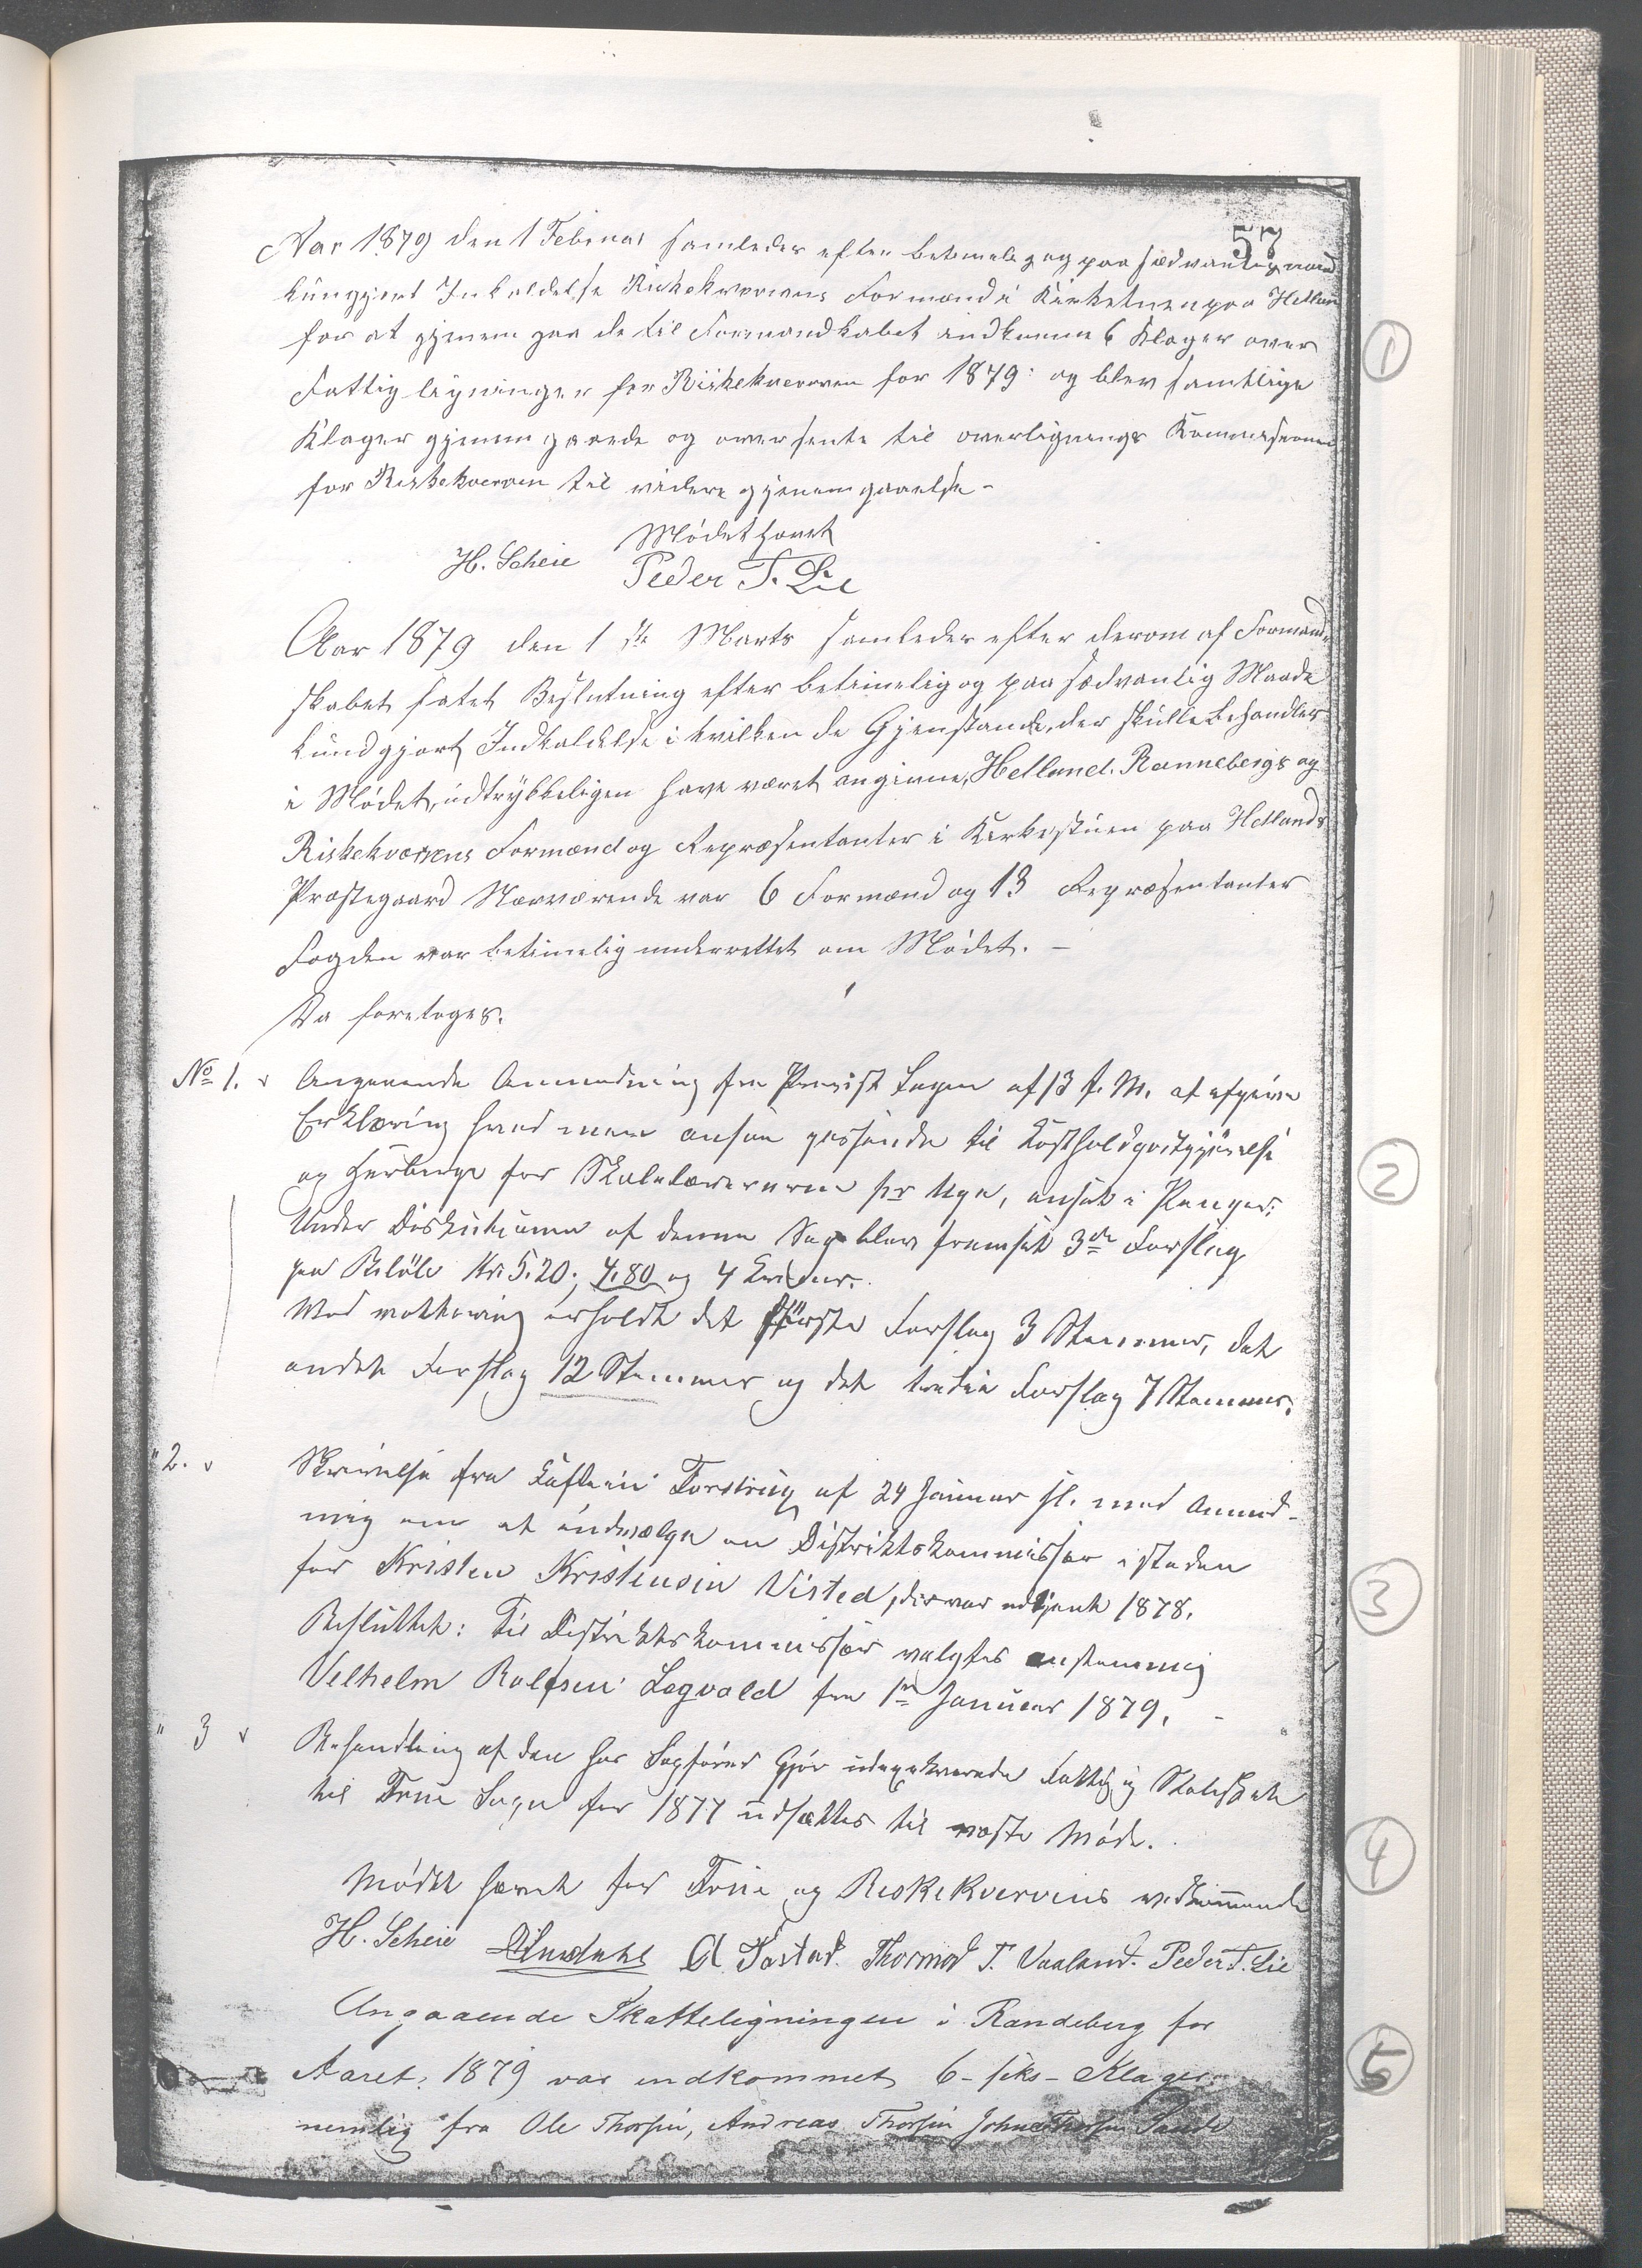 57
Aar 1879 den 1 Februar samledes efter betimelig og paa sædvanlig maade
kungjort Inkaldelse Riskekvervens Formænd i Kirkestuen paa Hetland
for at gjenem gaa de til Formandskabet indkomne 6 Klager over
Fattig ligninger for Riskekverven for 1879: og blev samtlige
Klager gjenem gaaede og oversente til overlignings Kommisionen
for Riskekverven til videre gjenemgaaelse -
Mødet hævet
H. Scheie Peder T. Lie
Aar 1879 den 1ste Marts samledes efter derom af Formand-
skabet fatet Beslutning efter betimelig og paa sædvanlig Maade
kundgjort Indkaldelse i hvilken de Gjenstande, der skulle behandles
i Mødet, udtrykkeligen have været angivne, Hetland. Rannebergs og
Riskekvævens Formænd og Repræsentanter i Kirkestuen paa Hetlands
Præstegaard Nærværende var 6 Formænd og 13 Repræsentanter
Fogden var betimelig underrettet om Mødet. -
Da foretoges.
No 1. v Angaaende Anmodning fra Provist Lagen af 13 f. M. at afgive
Erklæring hvad man ansaa passende til Kostholdgodtgjørelse
og Herberge for Skolelærererne pr Uge, ansat i Penger:
Under Diskutionen af denne Sag blev fremsat 3de Forslag
paa Beløb Kr 5.20; 4.80 og 4 Kroner.
Med vottering erholdt det første Forslag 3 Stemmer, det
andet Forslag 12 Stemmer og det tredie Forslag 7 Stemmer.
" 2. v Skrivelse fra Kaptein Torstrup af 24 Januar sl. med Anmod-
ning om at indvælge en Distriktskommissær i steden
for Kristen Kristensen Visted, der var udtjent 1878.
Besluttet: Til Distriktskommissær valgtes enstemmig
Velhelm Rolfsen Løgvold fra 1ste Januar 1879. -
" 3 v Behandling af den hos Sagfører Gjør udexekverede Fattig og Skoleskat
til Frue Sogn for 1877 udsættes til næste Møde.
Mødet hævet for Frue og Riskekvervens vedkommende
H. Scheie A. Tastad. Thormod T. Vaaland. Peder T. Lie
Angaaende Skatteligningen i Randeberg for
Aaret 1879 var indkommet 6 - seks - Klager
nemlig fra Ole Thorsen, Andreas Thorsen John Thorsen Sande
1
2
3
4
5